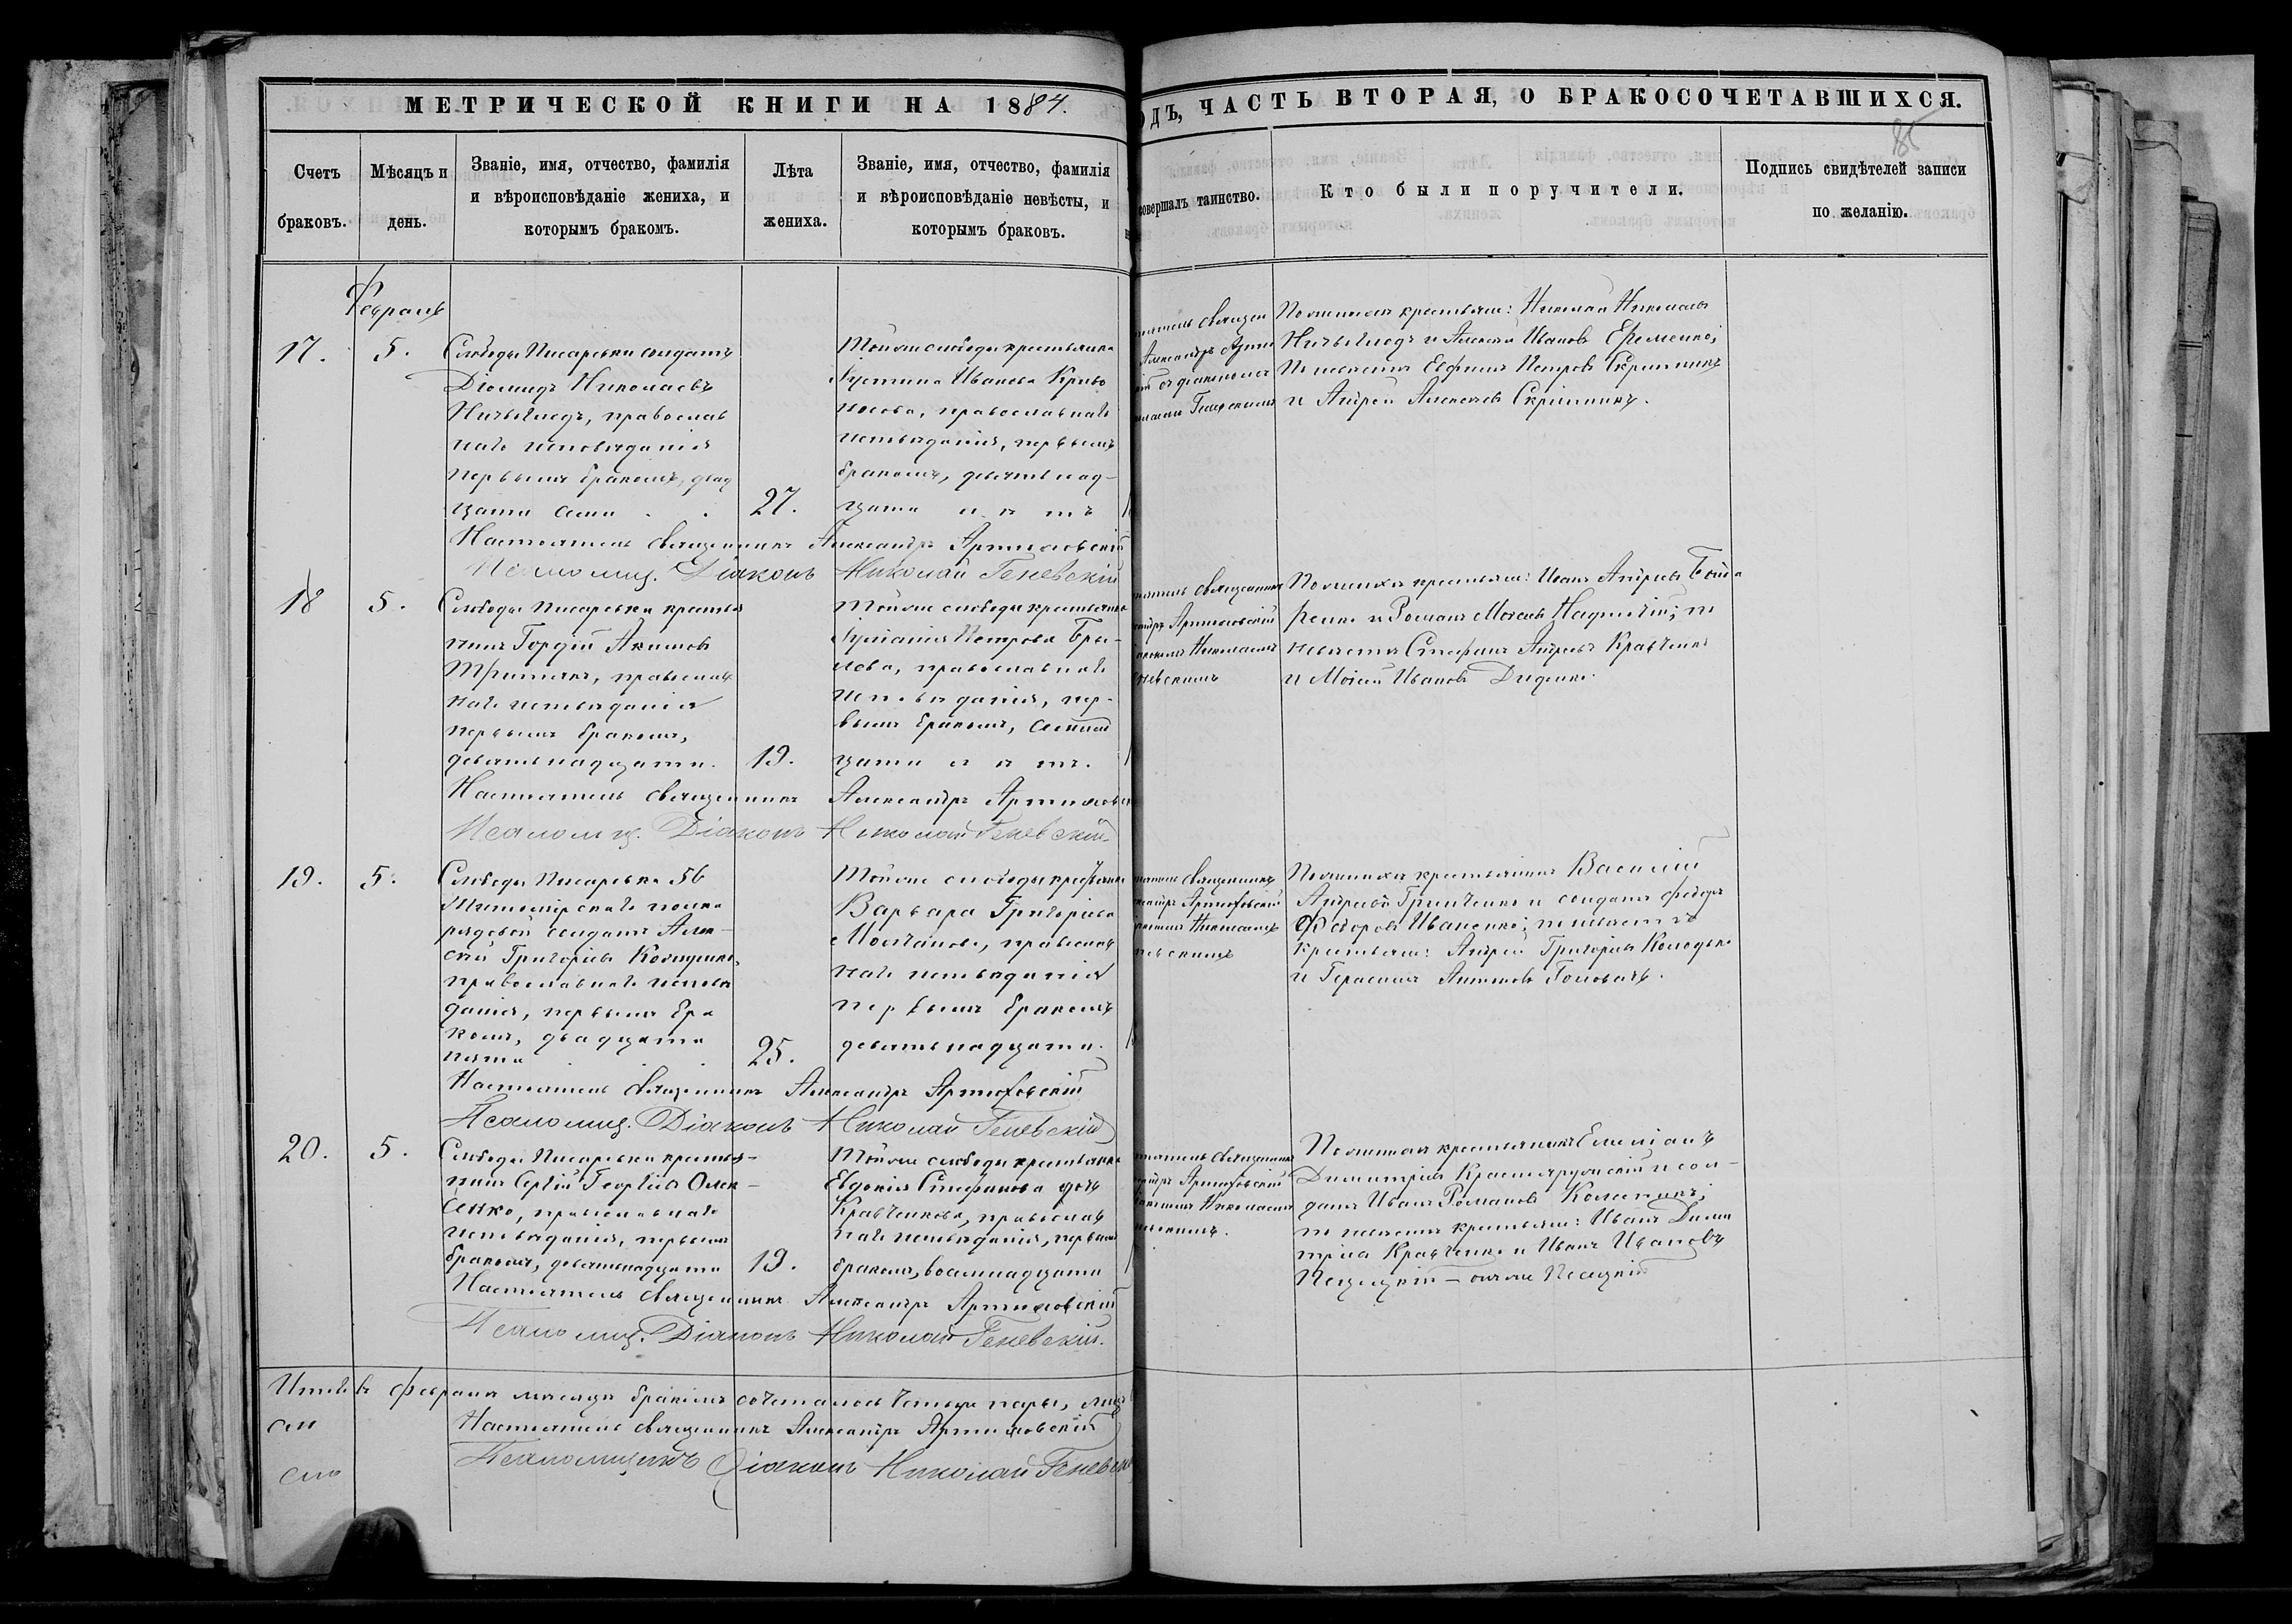 МЕТРИЧЕСКОЙ КНИГИ НА 1884.
ОДЪ, ЧАСТЬ ВТОРАЯ, О БРАКОСОЧЕТАВШИХСЯ.
85
Счетъ
браковъ.
Мѣсяцъ и
день.
Званіе, имя, отчество, фамилія
и вѣроисповѣданіе жениха, и
которымъ бракомъ.
Лѣта
жениха.
Званіе, имя, отчество, фамилія
и вѣроисповѣданіе невѣсты, и
которымъ браковъ.
совершалъ таинство.
Кто были поручители.
Подпись свидѣтелей записи
по желанію.
Февраль
17.
5.
Слободы Писаревки солдатъ
Діомидъ Николаевъ
православ
наго исповѣданія
первымъ бракомъ, двад
цати семи
27.
Тойже слободы крестьянка
Іустина Иванова Криво
носова, православнаго
исповѣданія, первымъ
бракомъ, девятнад-
цати лѣтъ
Александръ Артю
По женихѣ крестьяне: Николай Николаевъ
и Алексѣй Ивановъ Еременко;
По невѣстѣ Евфимъ Петровъ Скрыпникъ
и Андрей Алексѣевъ Скрыпникъ.
Настоятель священникъ Александръ Артюховскій
Псаломщ. Діаконъ Николай Геневскій
18
5.
Слободы Писаревки крестья
нинъ Гордій Акимовъ
православ
наго исповѣданія
первымъ бракомъ,
девятьнадцати.
19.
Тойже слободы крестьянка
Іуліанія Петрова Бры-
лева, православнаго
исповѣданія, пер-
вымъ бракомъ, семнад
цати лѣтъ.
Артюховскій
Николаемъ
невскимъ
По женихѣ крестьяне: Иванъ Андреевъ
и Романъ Моисеевъ; по
невѣстѣ Стефанъ Андреевъ Кравченко
и Моисей Ивановъ Диденко.
Настоятель священникъ Александръ Артюховск
Псаломщ. Діаконъ Николай Геневскій
19.
5.
Слободы Писаревки 56
Житомірскаго полка
рядовой солдатъ Алек-
сѣй Григорьевъ
православнаго исповѣ
данія, первымъ бра
комъ, двадцати
пяти
25.
Тойже слободы крестьянка
Варвара Григорьева
Молчанова, православ
наго исповѣданія
первымъ бракомъ
девятьнадцати.
священникъ
Артюховскій
Николаемъ
невскимъ
По женихѣ крестьянинъ Василій
Андреевъ Гринченко и солдатъ Федоръ
Федоровъ Иваненко; по невѣстѣ
крестьяне: Андрей Григорьевъ
и Герасимъ Антоновъ Головачъ.
Настоятель священникъ Александръ Артюховскій
Псаломщ. Діаконъ Николай Геневскій
20.
5.
Слободы Писаревки крестья-
нинъ Сергій Георгіевъ Олек-
сенко, православнаго
исповѣданія, первымъ
бракомъ, девятьнадцати
19.
Тойже слободы крестьянка
Евдокія Стефанова дочь
Кравченкова, православ
наго исповѣданія, первымъ
бракомъ, восемнадцати
священникъ
Артюховскій
Николаемъ
невскимъ.
По женихѣ крестьянинъ Емеліанъ
Димитріевъ Краснояружскій и сол-
датъ Иванъ Романовъ;
по невѣстѣ крестьяне: Иванъ Дими
тріевъ Кравченко и Иванъ Ивановъ
Настоятель священникъ Александръ Артюховскій
Псаломщ. Діаконъ Николай Геневскій.
Итого въ Февралѣ мѣсяцѣ бракомъ сочеталось четыре пары,
Настоятель священникъ Александръ Артюховскій
Псаломщикъ Діаконъ Николай Геневск